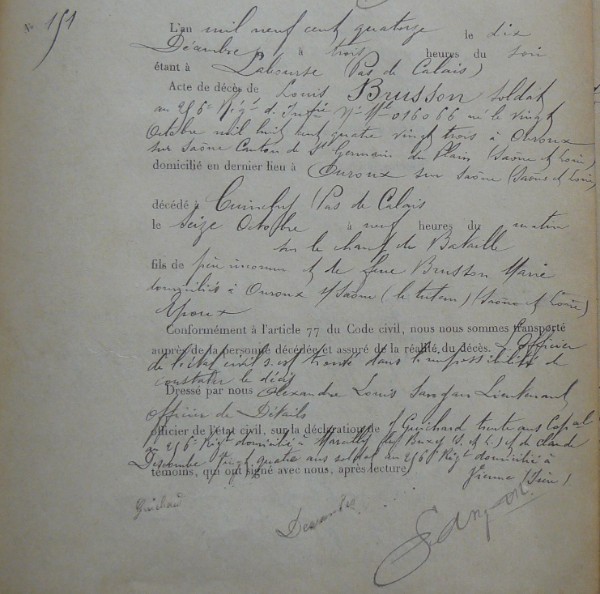 N° 151
L'an mil neuf cent quatorze le dix
Décembre à trois heures du soir
étant à Labourse (Pas de Calais)
Acte de décès de Louis Brusson soldat
au 256e Régt d'Infie N° Mle 016066 né le vingt
Octobre mil huit cent quatre vingt trois à Ouroux
sur Saône Canton de St Germain du Plain (Saône et Loire)
domicilié en dernier lieu à Ouroux sur Saône (Saône et Loire)
décédé à Cuinchy (Pas de Calais
le Seize Octobre à neuf heures du matin
sur le champ de Bataille
fils de père inconnu et de Brusson Marie
domiciliés à Ouroux s/Saône (le tuteur) (Saône et Loire)
Epoux
Conformément à l'article 77 du Code civil, nous nous sommes transporté
auprès de la personne décédée et assuré de la réalité du décès. L'Officier
de l'état civil s'est trouvé dans l'impossibilité de
constater le décès
Dressé par nous Alexandre Louis Lieutenant
Officier de Détails
officier de l'état civil, sur la déclaration de Guichard trente ans Caporal
au 256e Régt domicilié à Marcilly les Buxy (S. et L.) et de Claude
Descombe vingt quatre ans soldat au 256 Régt domicilié à
témoins, qui ont signé avec nous, après lecture, Vienne (Isère)
Guichard Descombe